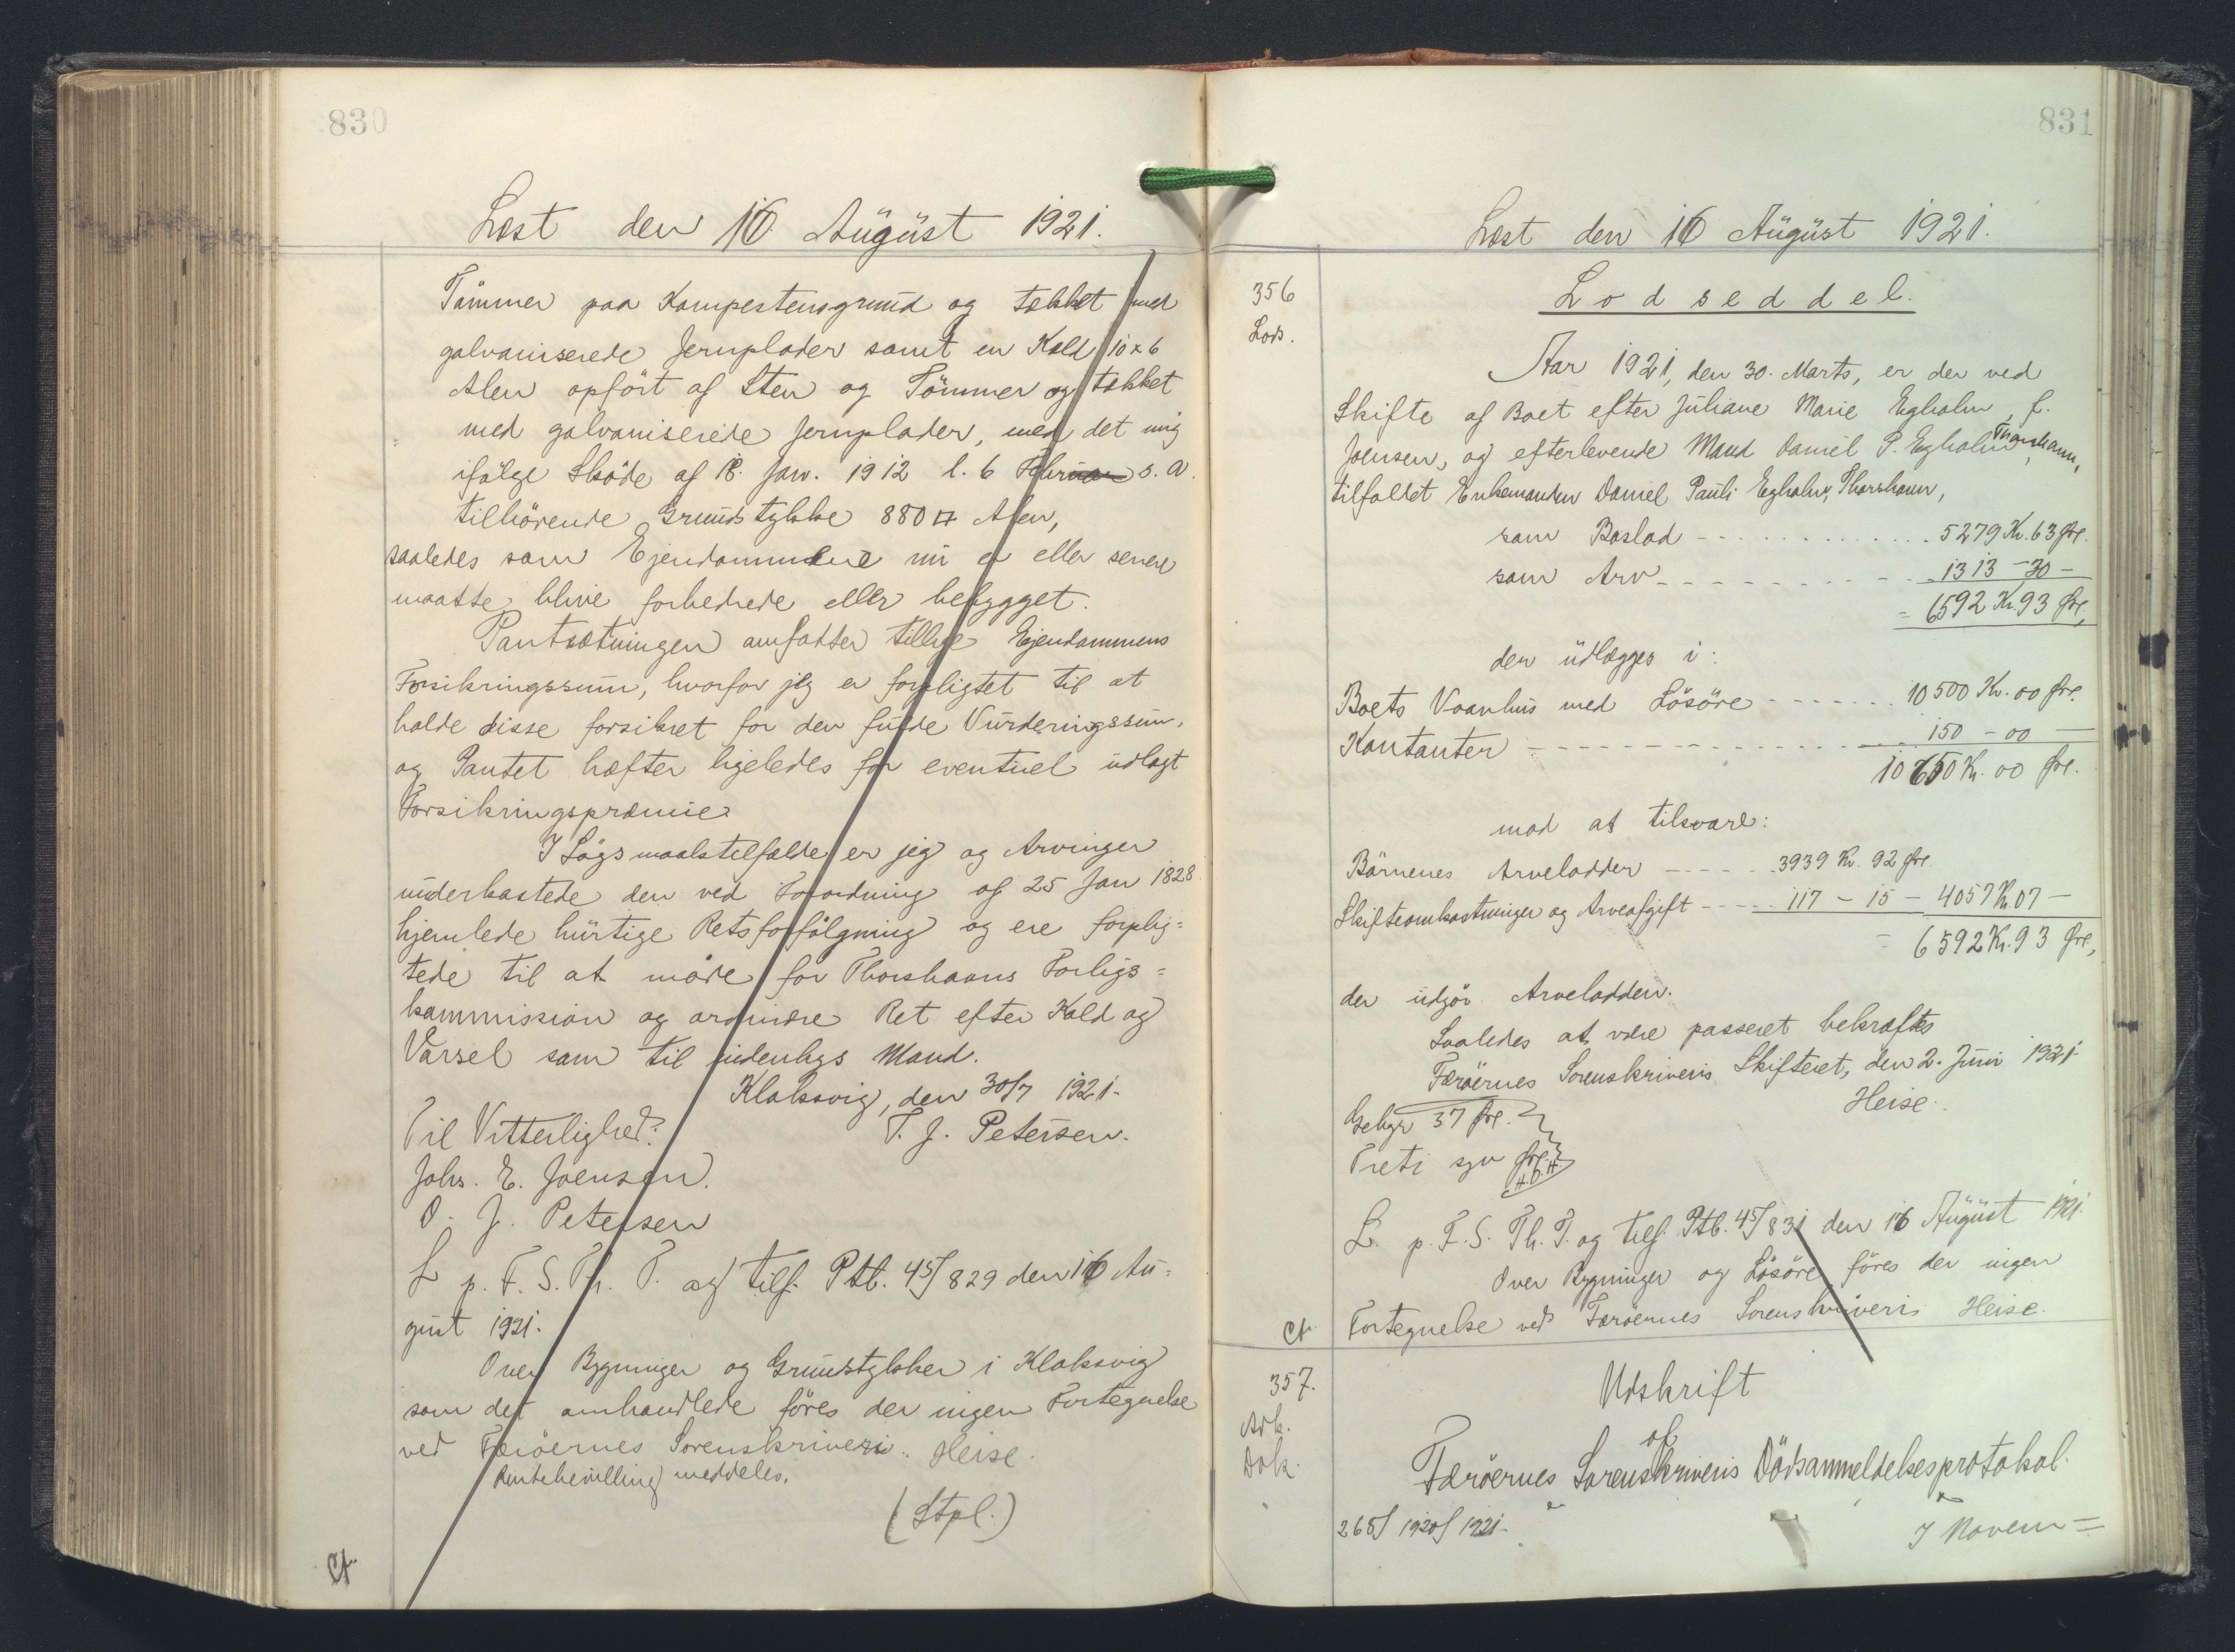 830
Læst den 16 August 1921.
Tömmer paa Kampestensgrund og tækket med
galvaniserede Jernplader samt en Kæld 10 x 6
Alen opfört af Sten og Tömmer og tækket
med galvaniserede Jernplader, med det mig
ifölge Sköde af 18. Jan. 1912 l. 6 Februar s. A.
tilhörende Grundstykke 880 □ Alen,
saaledes som Ejendommene nu er eller senere
maatte blive forbedrede eller bebygget.
Pantsætningen omfatter tillige Ejendommens
Forsikringssum, hvorfor jeg er forpligtet til at
holde disse forsikret for den fulde Vurderingssum,
og Pantet hæfter ligeledes for eventuel udlagt
Forsikringspræmie.
I Sögsmaalstilfælde er jeg og Arvinger
underkastede den ved Forordning af 25 Jan 1828
hjemlede hurtige Retsforfölgning og ere forplig=
tede til at möde for Thorshavns Forligs=
kommission og ordinære Ret efter Kald og
Varsel som til indenbys Mand.
Klaksvig, den 30/7 1921.
Til Vitterlighed: T. J. Petersen.
Johs. E. Joensen.
O. J. Petersen
L p. F. S. Th. T. og tilf. Ptb. 45/829 den 16 Au=
gust 1921.
Over Bygninger og Grundstykker i Klaksvig
som det omhandlede föres der ingen Fortegnelse
ved Færöernes Sorenskriveri. Heise.
Rentebevilling meddeles.
(Stpl.)
Ct.
831
Læst den 16 August 1921.
356
Lods.
Lodseddel.
Aar 1921, den 30. Marts, er der ved
Skifte af Boet efter Juliane Marie Egholm, f.
Joensen, og efterlevende Mand Daniel P. Egholm, Thorshavn,
tilfaldet Enkemanden Daniel Pauli Egholm, Thorshavn,
som Boslod - - - - 5279 Kr. 63 Øre.
som Arv - - - - 1313 - 30 -
= 6592 Kr. 93 Øre,
der udlægges i:
Boets Vaanhus med Lösöre - - - - 10500 Kr. 00 Øre.
Kontanter - - - - 150 - 00 -
10650 Kr. 00 Øre.
mod at tilsvare:
Börnenes Arvelodder - - - - 3939 Kr. 92 Øre
Skifteomkostninger og Arveafgift - - - - 117 - 15 - 4057 Kr. 07 -
= 6592 Kr. 93 Øre,
der udgör Arvelodden.
Saaledes at være passeret bekræftes
Færöernes Sorenskriveris Skifteret, den 2. Juni 1921
Heise.
Gebyr 37 Øre.
Treti syv Øre.
H. O. H.
L. p. F. S. Th. T. og tilf. Ptb. 45/831 den 16 August 1921.
Over Bygninger og Lösöre föres der ingen
Ct. Fortegnelse ved Færöernes Sorenskriveri Heise.
357.
Adk.
Dok.
Udskrift
af
Færöernes Sorenskriveris Dödsanmeldelsesprotokol.
268/1920/1921. I Novem=